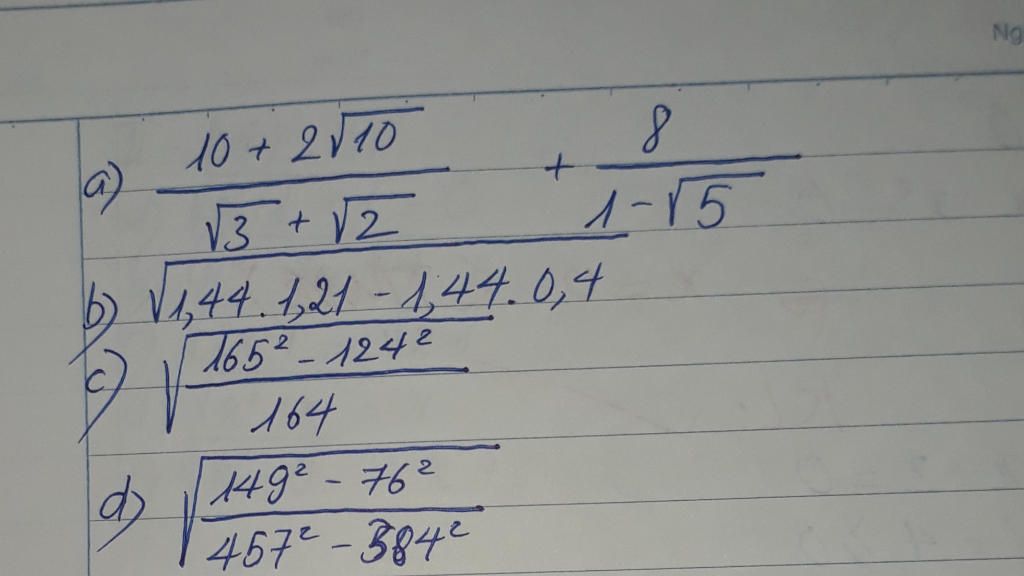 Ng
a) (10 + 2√10)/(√3 + √2) + 8/(1 - √5)
b) √(1,44 . 1,21 - 1,44 . 0,4)
c) √((165² - 124²)/164)
d) √((149² - 76²)/(457² - 384²))